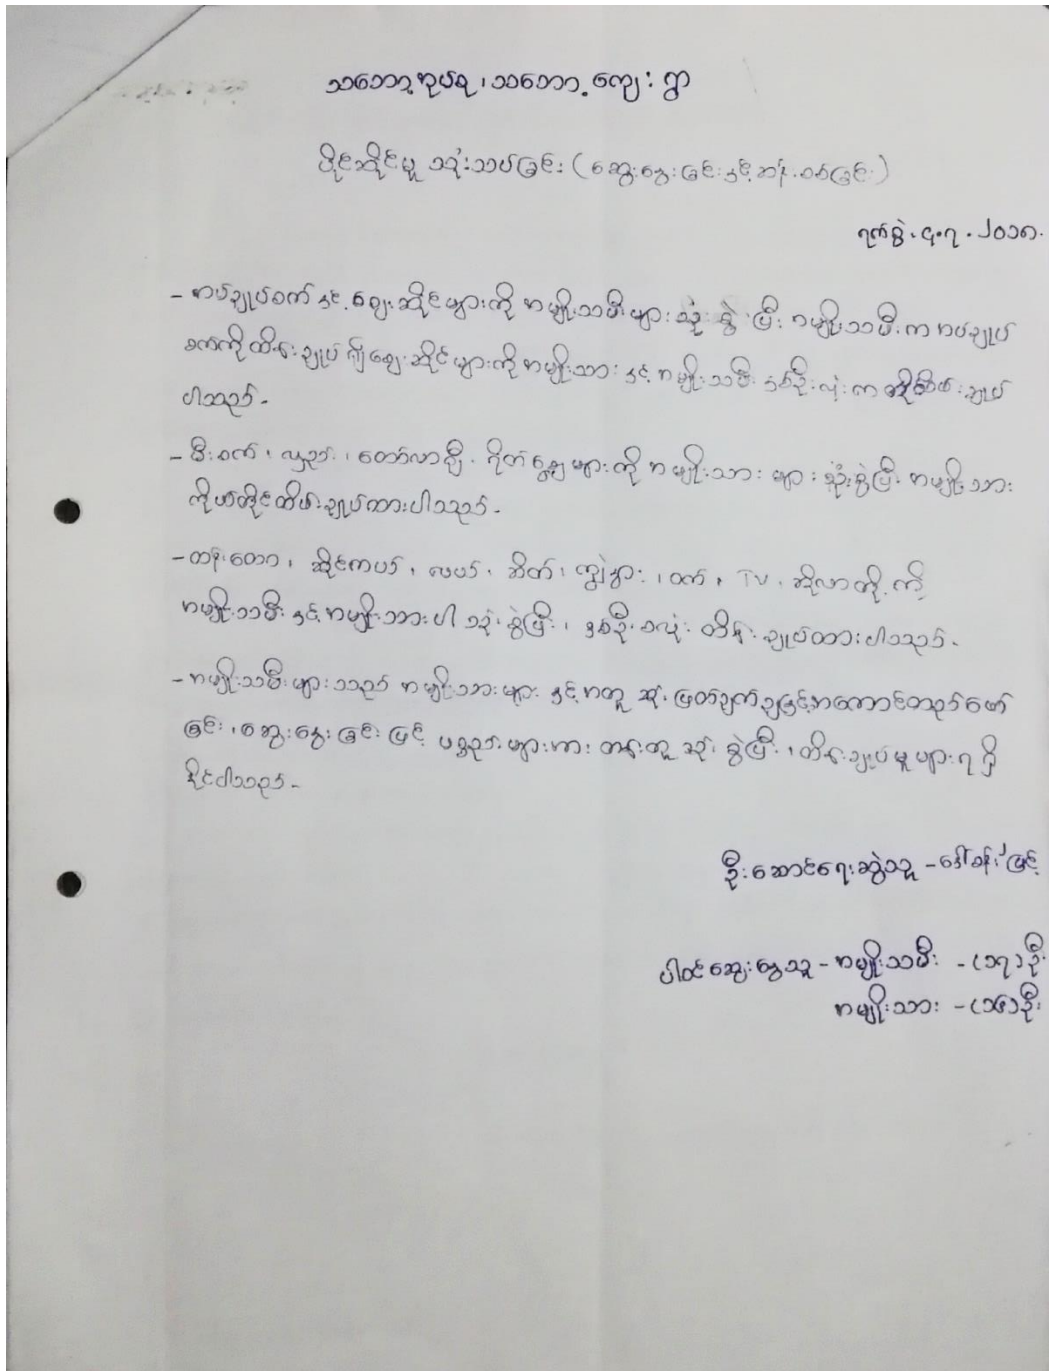 သဘော့အုပ်စု၊ သဘော့ကျေးရွာ
ပိုင်ဆိုင်မှု သုံးသပ်ခြင်း (ဆွေးနွေးခြင်းနှင့်ဆန်းစစ်ခြင်း)
ရက်စွဲ၊ ၄.၇.၂၀၁၈.
- အပ်ချုပ်စက်နှင့်ဈေးဆိုင်များကို အမျိုးသမီးများ သုံးစွဲပြီး အမျိုးသမီးက အပ်ချုပ်
စက်ကိုထိန်းချုပ်၍ ဈေးဆိုင်များကိုအမျိုးသားနှင့် အမျိုးသမီး နှစ်ဦးလုံးက ထိန်းချုပ်
ပါသည်.
- မီးစက်၊ လှည်း၊ တော်လာဂျီ၊ များကို အမျိုးသားများ သုံးစွဲပြီး အမျိုးသား
ကိုယ်တိုင်ထိန်းချုပ်ထားပါသည်.
- ထန်းတော၊ ဆိုင်ကယ်၊ လယ်၊ ဆိတ်၊ ကျွဲနွား၊ ဝက်၊ TV၊ ဆိုလာတို့ကို
အမျိုးသမီးနှင့်အမျိုးသားပါ သုံးစွဲပြီး၊ နှစ်ဦးစလုံး ထိန်းချုပ်ထားပါသည်.
- အမျိုးသမီးများသည် အမျိုးသားများနှင့်အတူ ဆုံးဖြတ်ချက်ချခြင်း၊အကောင်အထည်ဖော်
ခြင်း၊ဆွေးနွေးခြင်းဖြင့် ပစ္စည်းများအား တန်းတူသုံးစွဲပြီး၊ထိန်းချုပ်မှုများရရှိ
နိုင်ပါသည်.
ဦးဆောင်ရေးဆွဲသူ - ဒေါ်ခန်းမြင့်
ပါဝင်ဆွေးနွေးသူ - အမျိုးသမီး - (၁၇)ဦး
အမျိုးသား - (၁၆)ဦး